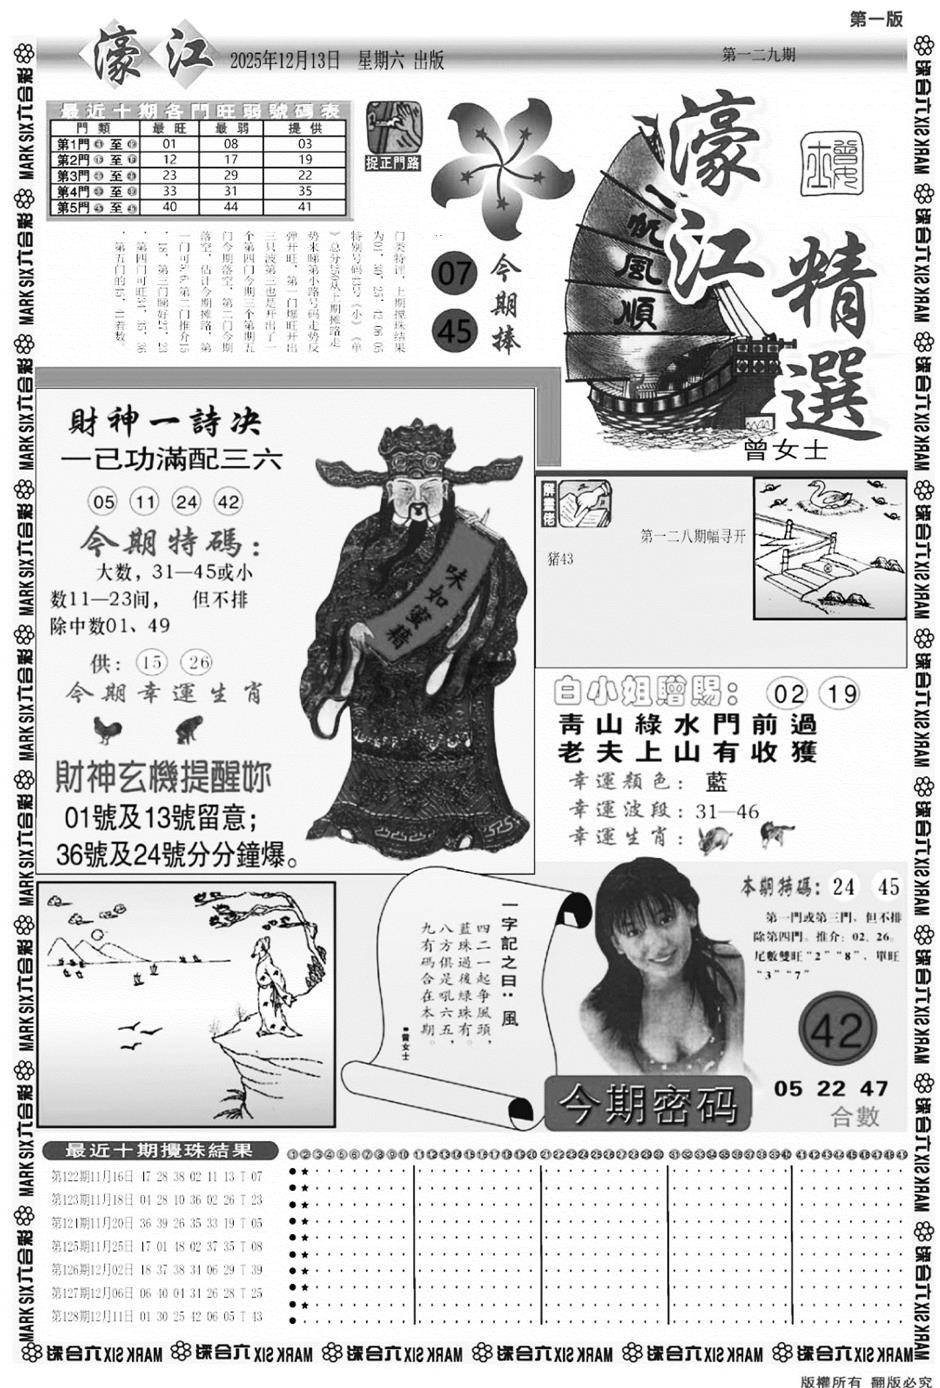 第一版
濠江 2025年12月13日 星期六 出版 第一二九期
最近十期各門旺弱號碼表
門類 最旺 最弱 提供
第1門 至 01 08 03
第2門 至 12 17 19
第3門 至 23 29 22
第4門 至 33 31 35
第5門 至 40 44 41
捉正門路
07
45
今期捧
一帆風順
濠江精選
曾女士
財神一詩决
一已功滿配三六
05 11 24 42
今期特碼:
大数，31—45或小
数11—23间， 但不排
除中数01、49
供: 15 26
今期幸運生肖
財神玄機提醒妳
01號及13號留意；
36號及24號分分鐘爆。
味如蜜糖
解畫佬
第一二八期幅寻开
猪43
白小姐贈賜: 02 19
青山綠水門前過
老夫上山有收獲
幸運顏色: 藍
幸運波段: 31—46
幸運生肖:
一字記之曰:風
四二一起争風頭，
藍珠過後绿珠有。
八方俱是吼六五，
九有码合在本期。
■曾女士
本期特碼: 24 45
第一門或第三門，但不排
除第四門。推介: 02、26。
尾數雙旺“2”“8”、單旺
“3”“7”
42
05 22 47
合數
今期密码
最近十期攪珠結果
第122期11月16日 47 28 38 02 11 13 T 07
第123期11月18日 04 28 10 36 02 26 T 23
第124期11月20日 36 39 26 35 33 19 T 05
第125期11月25日 17 01 48 02 37 35 T 08
第126期12月02日 18 37 38 34 06 29 T 39
第127期12月06日 06 40 04 31 26 28 T 25
第128期12月11日 01 30 25 42 06 05 T 43
六合彩 MARK SIX
版權所有 翻版必究